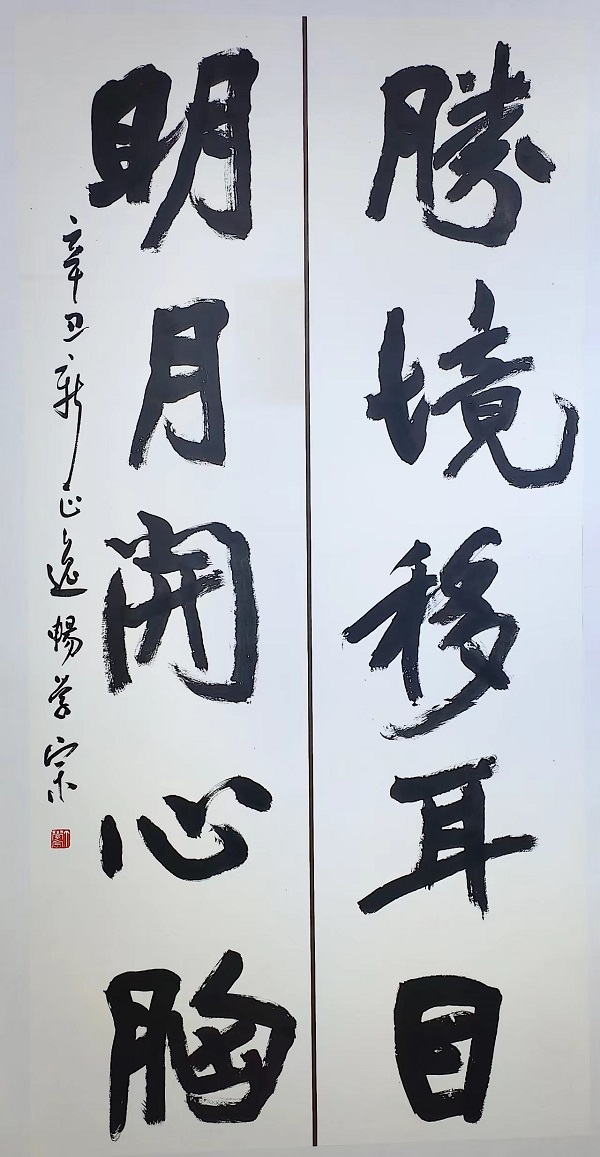 勝境移耳目
明月開心胸
辛丑新正逸暢学宗